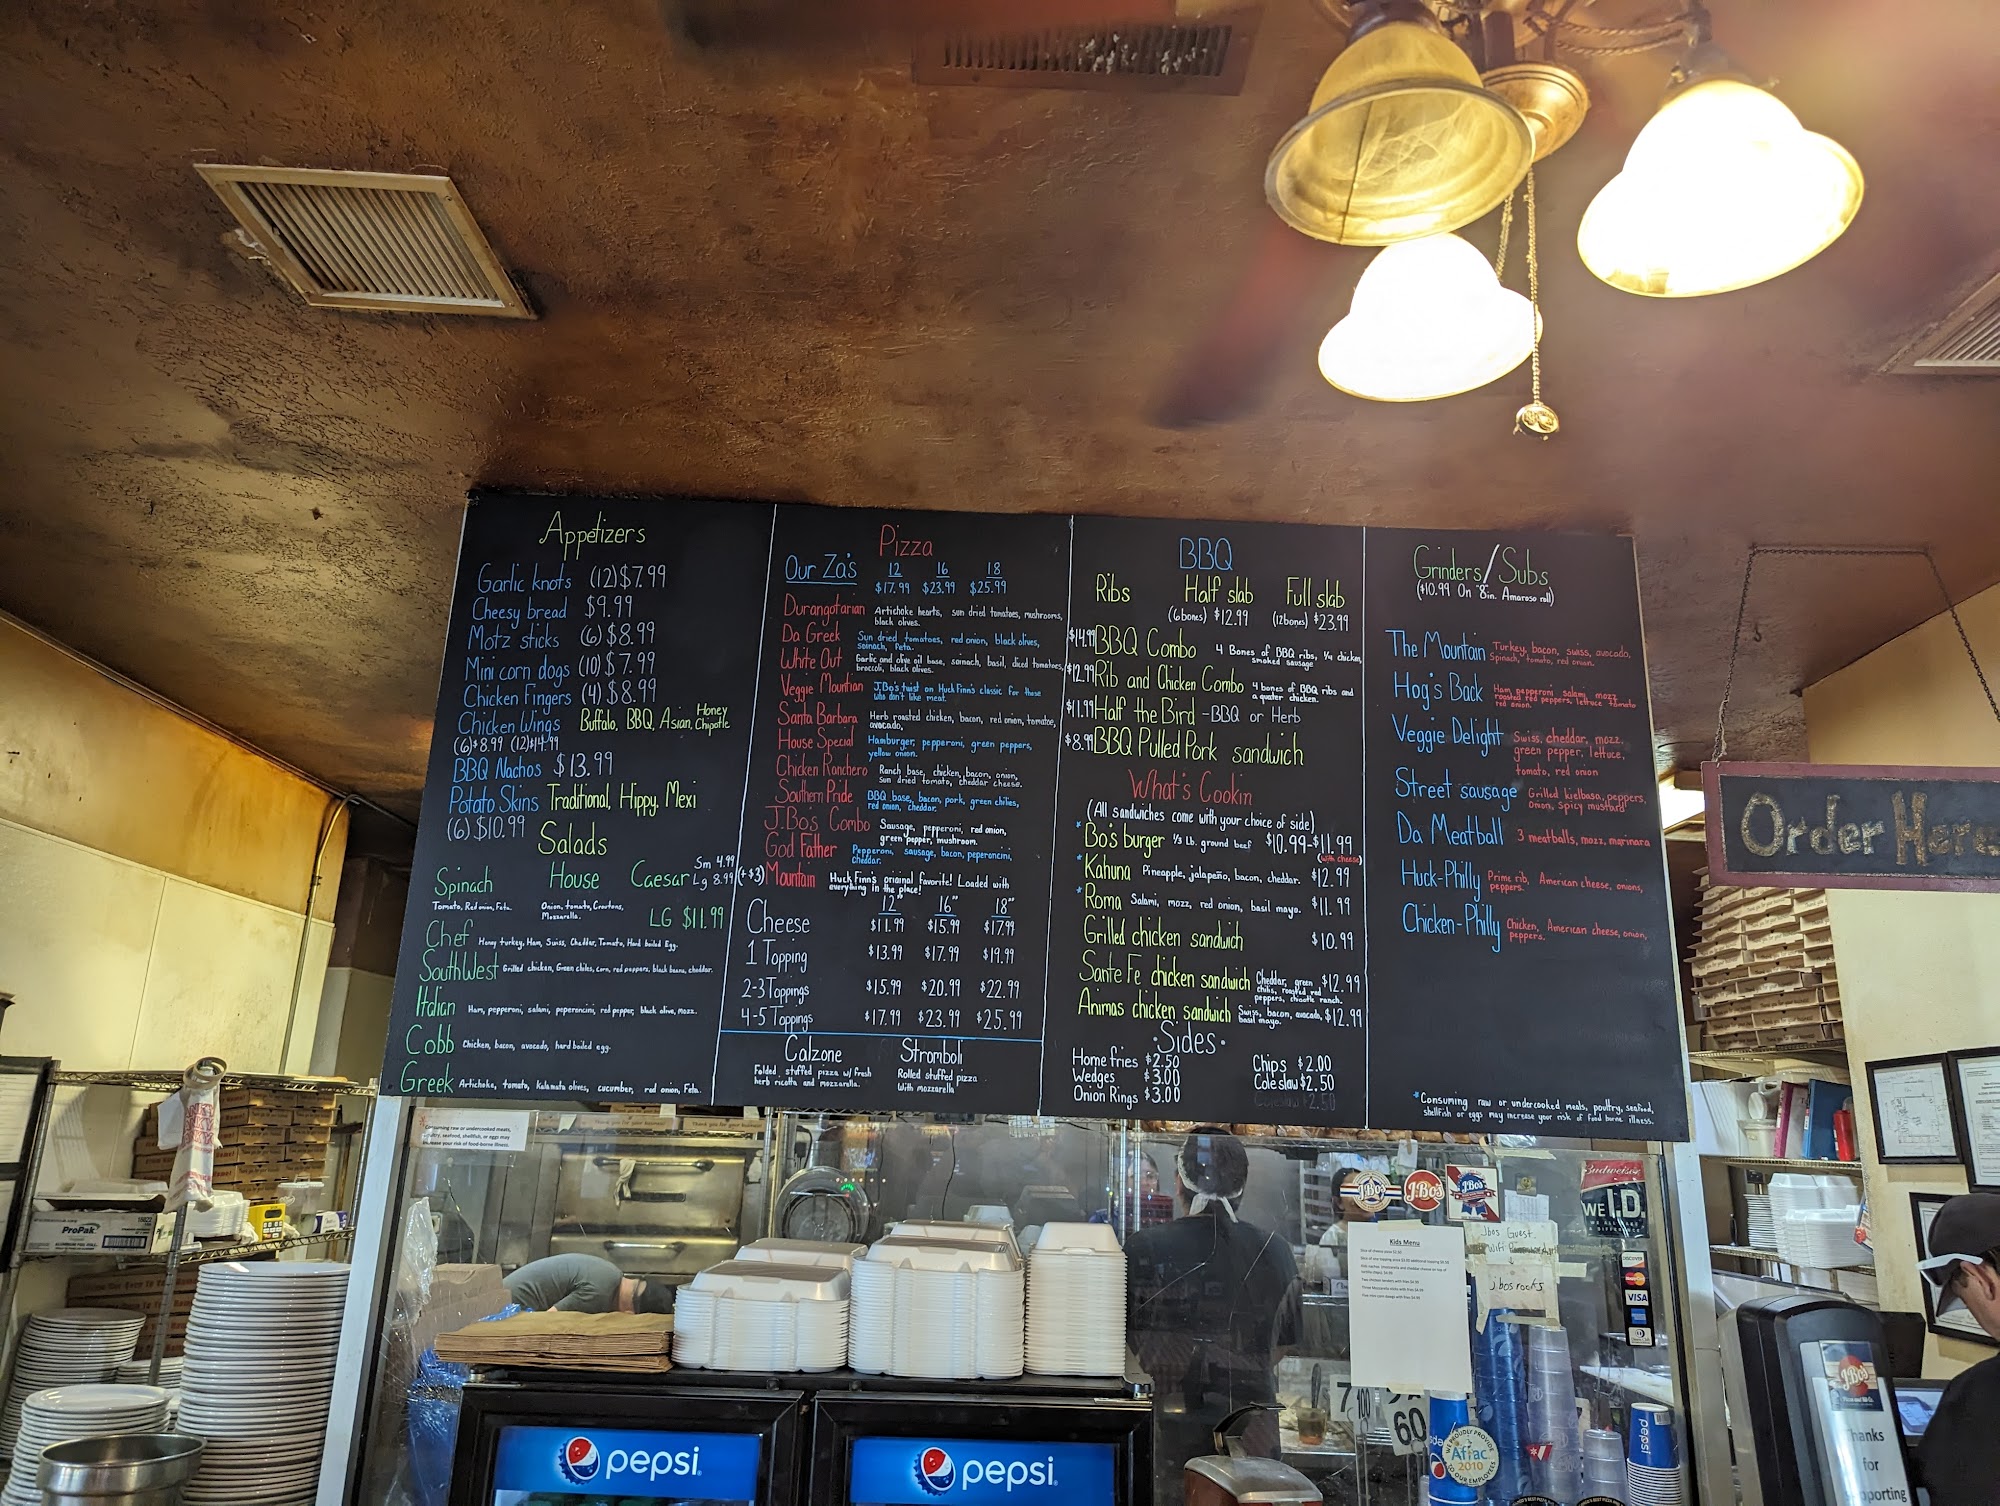 Appetizers
Garlic knots (12) $7.99
Cheesy bread $9.99
Motz sticks (6) $8.99
Mini corn dogs (10) $7.99
Chicken Fingers (4) $8.99
Chicken Wings Buffalo, BBQ, Asian, Honey Chipotle
(6) $8.99 (12) $14.99
BBQ Nachos $13.99
Potato Skins Traditional, Hippy, Mexi
(6) $10.99
Salads
Spinach House Caesar Sm 4.99 Lg 8.99
Tomato, Red onion, Feta. Onion, tomato, Croutons, Mozzarella.
LG $11.99
Chef Honey turkey, Ham, Swiss, Cheddar, Tomato, Hard boiled Egg.
SouthWest Grilled chicken, Green chiles, corn, red peppers, black beans, cheddar.
Italian Ham, pepperoni, salami, peperoncini, red pepper, black olive, mozz.
Cobb Chicken, bacon, avocado, hard boiled egg.
Greek Artichoke, tomato, kalamata olives, cucumber, red onion, Feta.
Pizza
Our Za's 12 16 18
$17.99 $23.99 $25.99
Durangotarian Artichoke hearts, sun dried tomatoes, mushrooms,
black olives.
Da Greek Sun dried tomatoes, red onion, black olives,
spinach, Feta.
White Out Garlic and olive oil base, spinach, basil, diced tomatoes,
broccoli, black olives.
Veggie Mountian J.Bo's twist on Huck Finn's classic for those
who don't like meat.
Santa Barbara Herb roasted chicken, bacon, red onion, tomatoe,
avocado.
House Special Hamburger, pepperoni, green peppers,
yellow onion.
Chicken Ranchero Ranch base, chicken, bacon, onion,
Sun dried tomato, cheddar cheese.
Southern Pride BBQ base, bacon, pork, green chilies,
red onion, cheddar.
J.Bo's Combo Sausage, pepperoni, red onion,
green pepper, mushroom.
God Father Pepperoni, sausage, bacon, peperoncini,
cheddar.
(+$3) Mountain Huck Finn's original favorite! Loaded with
everything in the place!
12" 16" 18"
Cheese $11.99 $15.99 $17.99
1 Topping $13.99 $17.99 $19.99
2-3 Toppings $15.99 $20.99 $22.99
4-5 Toppings $17.99 $23.99 $25.99
Calzone
Folded stuffed pizza w/ fresh
herb ricotta and mozzarella.
Stromboli
Rolled stuffed pizza
With mozzarella
BBQ
Ribs Half slab Full slab
(6 bones) $12.99 (12 bones) $23.99
$14.99 BBQ Combo 4 Bones of BBQ ribs, 1/4 chicken,
smoked sausage
$12.99 Rib and Chicken Combo 4 bones of BBQ ribs and
a quater chicken.
$11.99 Half the Bird - BBQ or Herb
$8.99 BBQ Pulled Pork sandwich
What's Cookin
(All sandwiches come with your choice of side)
* Bo's burger 1/3 Lb. ground beef $10.99-$11.99
(with cheese)
* Kahuna Pineapple, jalapeño, bacon, cheddar. $12.99
* Roma Salami, mozz, red onion, basil mayo. $11.99
Grilled chicken sandwich $10.99
Sante Fe chicken sandwich Cheddar, green
chilis, roasted red
peppers, chipotle ranch. $12.99
Animas chicken sandwich Swiss, bacon, avocado,
basil mayo. $12.99
•Sides•
Home fries $2.50
Wedges $3.00
Onion Rings $3.00
Chips $2.00
Coleslaw $2.50
Grinders/Subs
($10.99 On 8in. Amaroso roll)
The Mountain Turkey, bacon, swiss, avocado,
Spinach, tomato, red onion.
Hog's Back Ham, pepperoni, salami, mozz,
roasted red peppers, lettuce, tomato
red onion.
Veggie Delight Swiss, cheddar, mozz,
green pepper, lettuce,
tomato, red onion
Street sausage Grilled kielbasa, peppers,
Onion, spicy mustard
Da Meatball 3 meatballs, mozz, marinara
Huck-Philly Prime rib, American cheese, onions,
peppers.
Chicken-Philly Chicken, American cheese, onion,
peppers.
*Consuming raw or undercooked meats, poultry, seafood,
shellfish or eggs may increase your risk of food borne illness.
Order Here
Consuming raw or undercooked meats,
poultry, seafood, shellfish, or eggs may
increase your risk of food-borne illness.
ProPak
J.Bo's
J.Bo's
J.Bo's
Budweiser
WE I.D.
Kids Menu
Jbos Guest
Wifi
jbosroots
DISCOVER
MasterCard
VISA
pepsi
pepsi
pepsi
60
100
WE PROUDLY PROVIDE
Aflac
2010
TO OUR EMPLOYEES
J.Bo's
Thanks
for
supporting